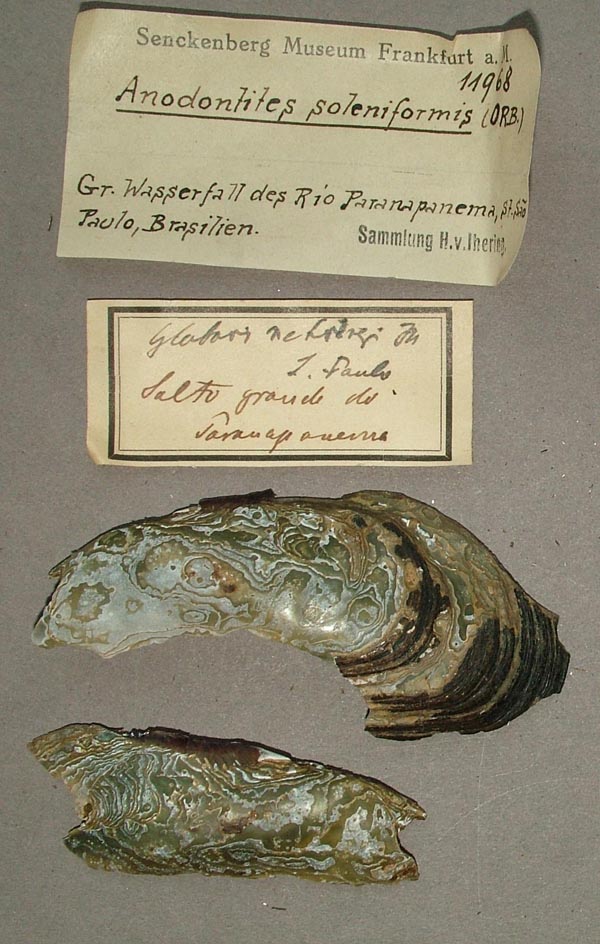 Senckenberg Museum Frankfurt a. M.
11968
Anodontites soleniformis (ORB.)
Gr. Wasserfall des Rio Paranapanema, St. São
Paulo, Brasilien.
Sammlung H.v.Ihering
S. Paulo
Salto grande do
Paranapanema